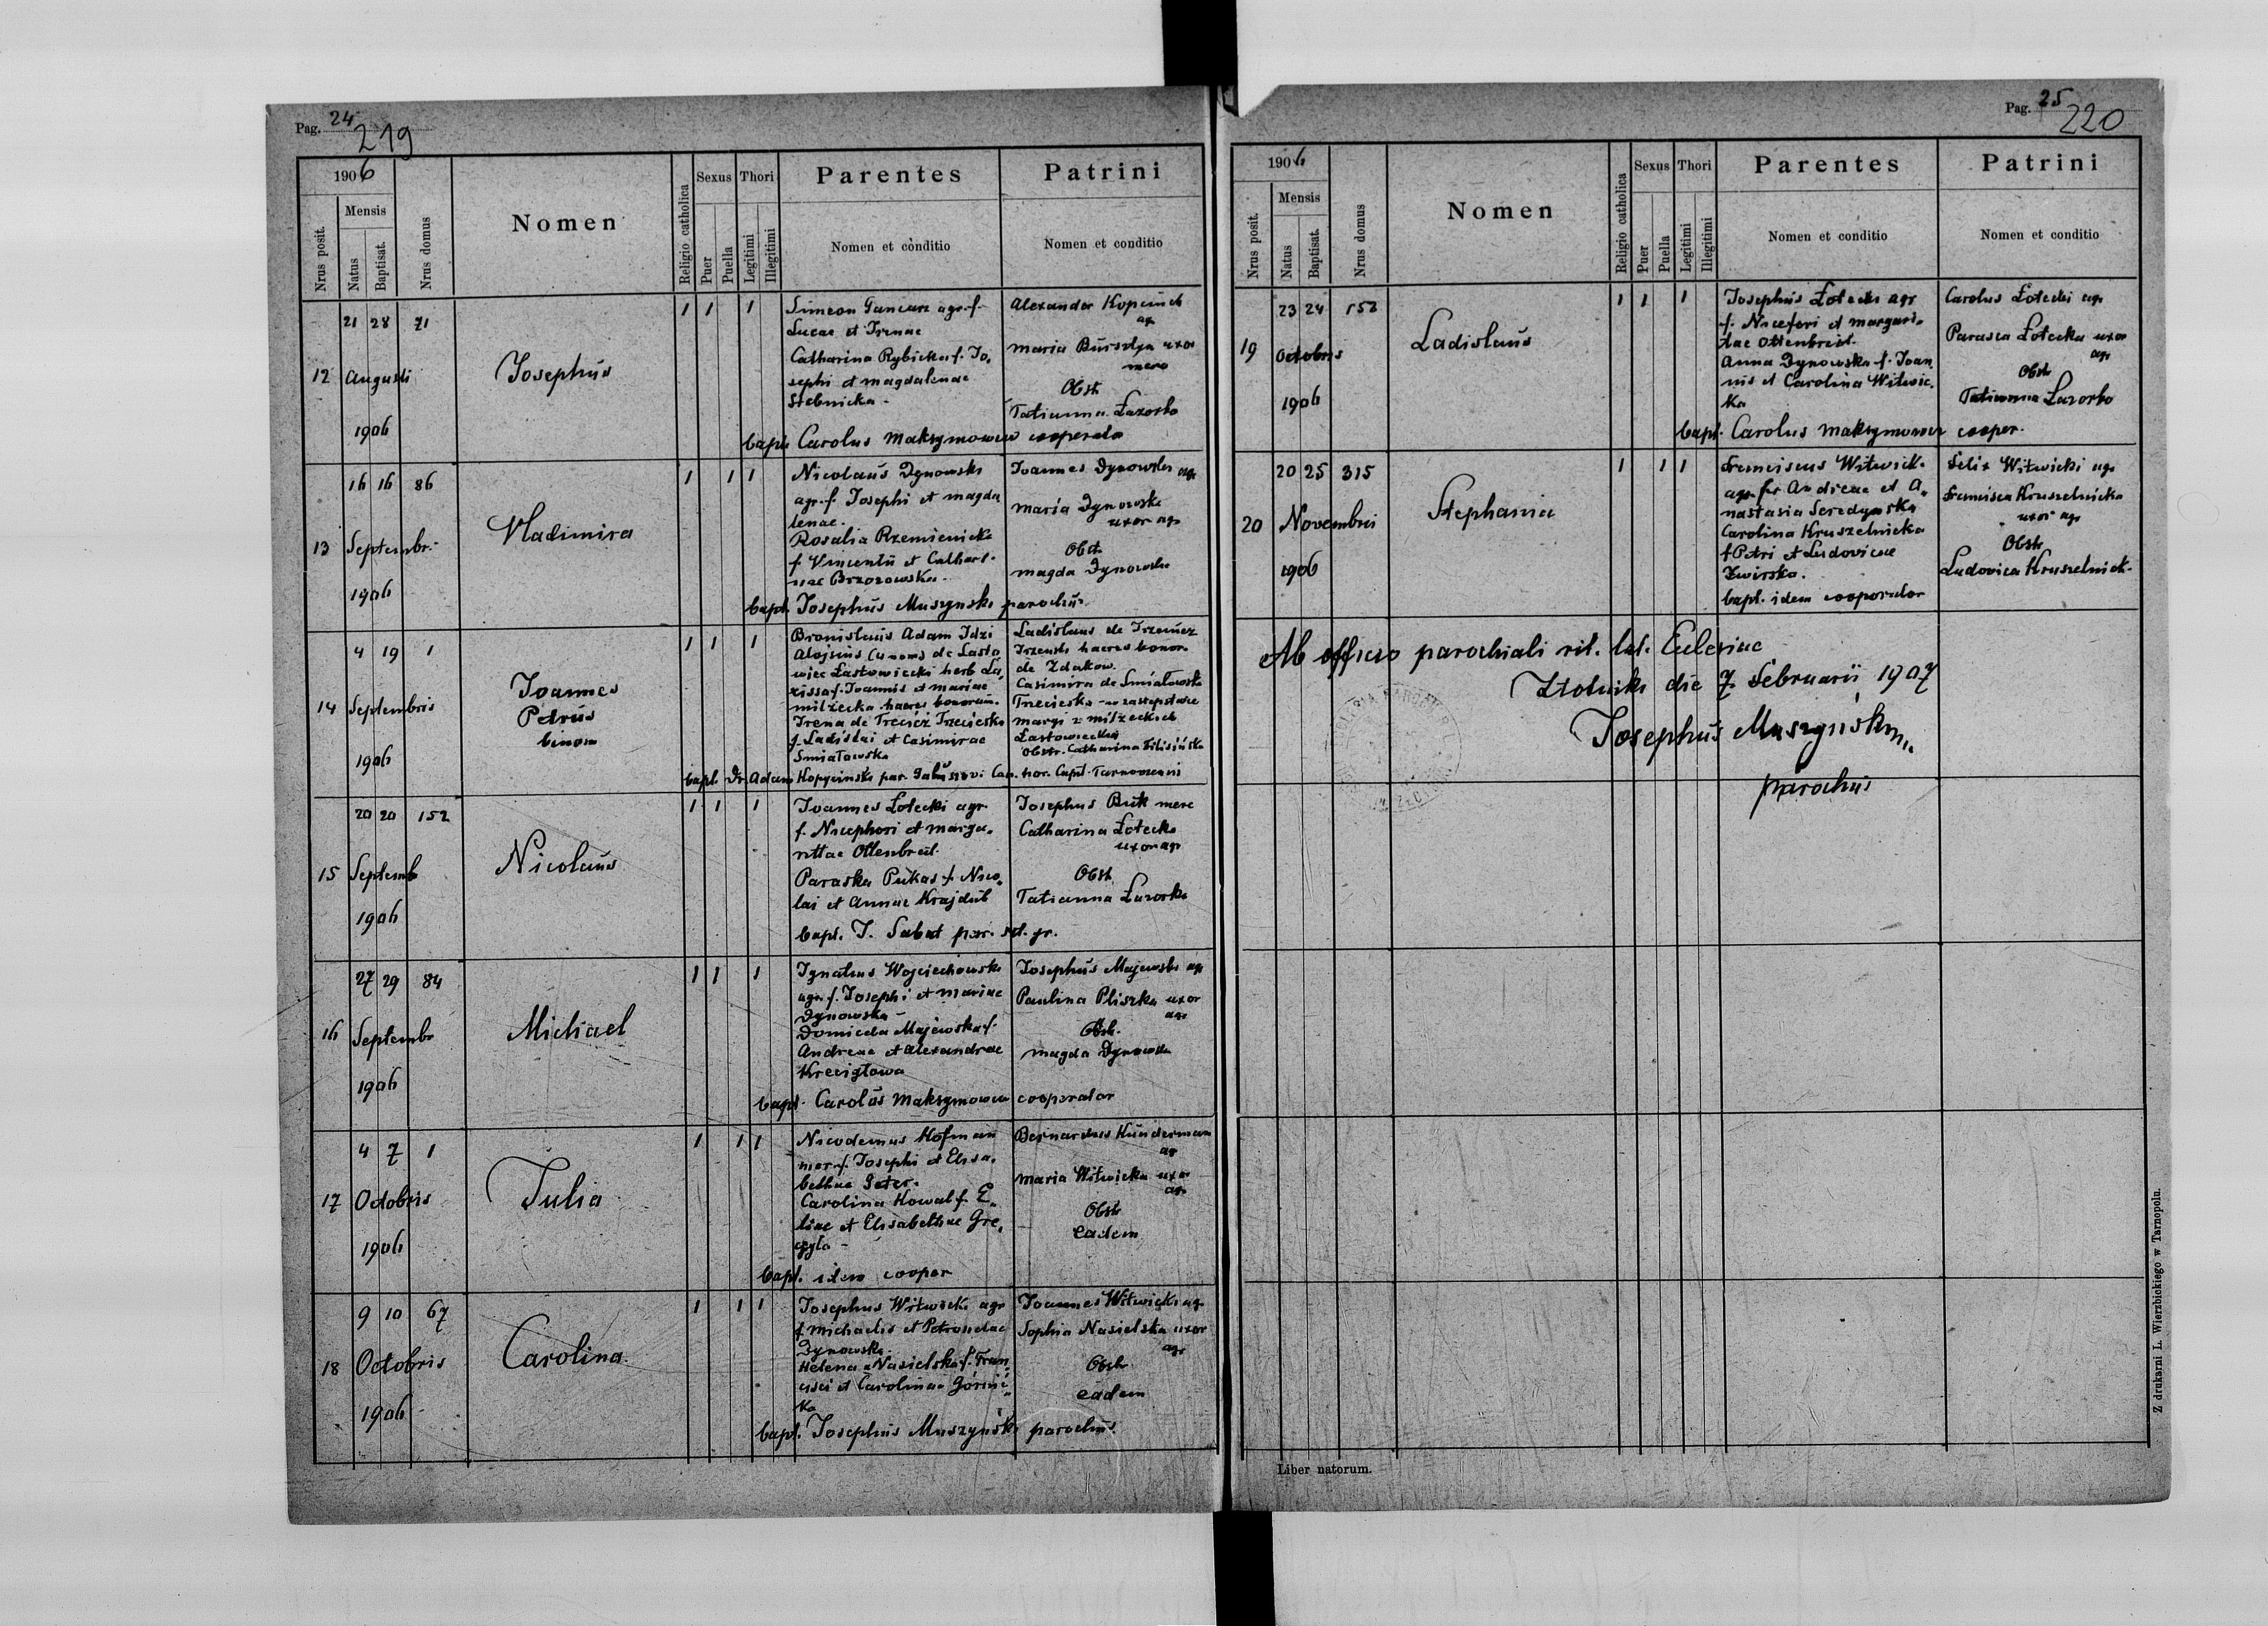 Pag. 24
219
1906
Nrus posit.
Mensis
Natus
Baptisat.
Nrus domus
Nomen
Religio catholica
Sexus
Puer
Puella
Thori
Legitimi
Illegitimi
Parentes
Nomen et conditio
Patrini
Nomen et conditio
12
21 28 71
Augusti
1906
Josephus
1 1 1
Simeon agr. f.
Lucae et Irenae
Catharina Rybicka f. Jo-
sephi et Magdalenae
Stebnicka -
Alexander
ag
Maria uxor
merc
Obst
Tatianna Łazorko
bapt. Carolus Maksymowicz cooperator
13
16 16 86
Septembr.
1906
Vladimira
1 1 1
Nicolaus Dynowski
agr. f. Josephi et Magda
lenae.
Rosalia Rzemienicka
f. Vincentii et Cathari-
nae Brzozowska.
Joannes Dynowski agr
Maria Dynowska
uxor agr
Obst.
Magda Dynowska
bapt. Josephus Muszynski parochus
14
4 19 1
Septembris
1906
Joannes
Petrus
binom
1 1 1
Bronislaus Adam Idzi
Alojsius (4 nom) de Lasto
wiec Lastowiecki herb La-
rissa f. Joannis et Mariae
Milżecka haeres bonorum.
Irena de Trecież Trzecieska
f. Ladislai et Casimirae
Smiałowska
Ladislaus de
haeres bonor.
de Zdakow.
Casimira de Smiałowska
Trzecieska - w zastępstwie
Margi z Milżeckich
Lastowieckiej
Obstr. Catharina
bapt. Dr. Adam Kopyciński par. Can. hor. Capit. Tarnoviensis
15
20 20 152
Septemb
1906
Nicolaus
1 1 1
Joannes Łotecki agr.
f. Nicephori et Marga-
rittae Ottenbreit.
Paraska Pukas f. Nico-
lai et Annae Krajdub
Josephus Buk merc
Catharina Łotecka
uxor agr
Obst
Tatianna Łazorko
bapt. J. Sabat par. rit. gr.
16
27 29 84
Septembr
1906
Michael
1 1 1
Ignatius Wojciechowski
agr. f. Josephi et Mariae
Dynowska -
Domicela Majewska f.
Andreae et Alexandrae
Krecigłowa
Josephus Majewski agr
Paulina Pliszka uxor
agr
Obst.
Magda Dynowska
bapt. Carolus Maksymowicz cooperator
17
4 7 1
Octobris
1906
Julia
1 1 1
Nicodemus Hofman
mer. f. Josephi et Elisa-
bethae Peter.
Carolina Kowal f. E-
liae et Elisabethae Gre-
gyla -
Bernardus Kunderman
ag
Maria Witwicka uxor
agr
Obst
eadem
bapt. idem cooper
18
9 10 67
Octobris
1906
Carolina
1 1 1
Josephus Witwicki agr
f Michaelis et Petronelae
Dynowska.
Helena Nasielska f. Fran
cisci et Carolinae Górnic-
ka
Joannes Witwicki agr
Sophia Nasielska uxor
agr
Obst
eadem
bapt. Josephus Muszyński parochus.
Pag. 25
220
1906
Nrus posit.
Mensis
Natus
Baptisat.
Nrus domus
Nomen
Religio catholica
Sexus
Puer
Puella
Thori
Legitimi
Illegitimi
Parentes
Nomen et conditio
Patrini
Nomen et conditio
19
23 24 152
Octobris
1906
Ladislaus
1 1 1
Josephus Łotecki agr
f. Nicefori et Margari-
tae Ottenbreit.
Anna Dynowska f. Joan
nis et Carolina Witwic-
ka
Carolus Łotecki agr
Parasca Łotecka uxor
agr
Obst
Tatianna Łazorko
bapt. Carolus Maksymowicz cooper.
20
20 25 315
Novembris
1906
Stephania
1 1 1
Franciscus Witwick.
agr. f. Andreae et A-
nastasia Seredynska
Carolina Kruszelnicka
f Petri et Ludovicae
Zwirska.
bapt. idem cooperator
Felix Witwicki agr
Francisca Kruszelnicka
uxor agr
Obst
Ludovica Kruszelnick.
Ab officio parochiali rit. lat. Ecclesiae
Złotniki die 7. Februarii 1907
Josephus Muszyński
parochus
Liber natorum.
Z drukarni L. Wierzbickiego w Tarnopolu.